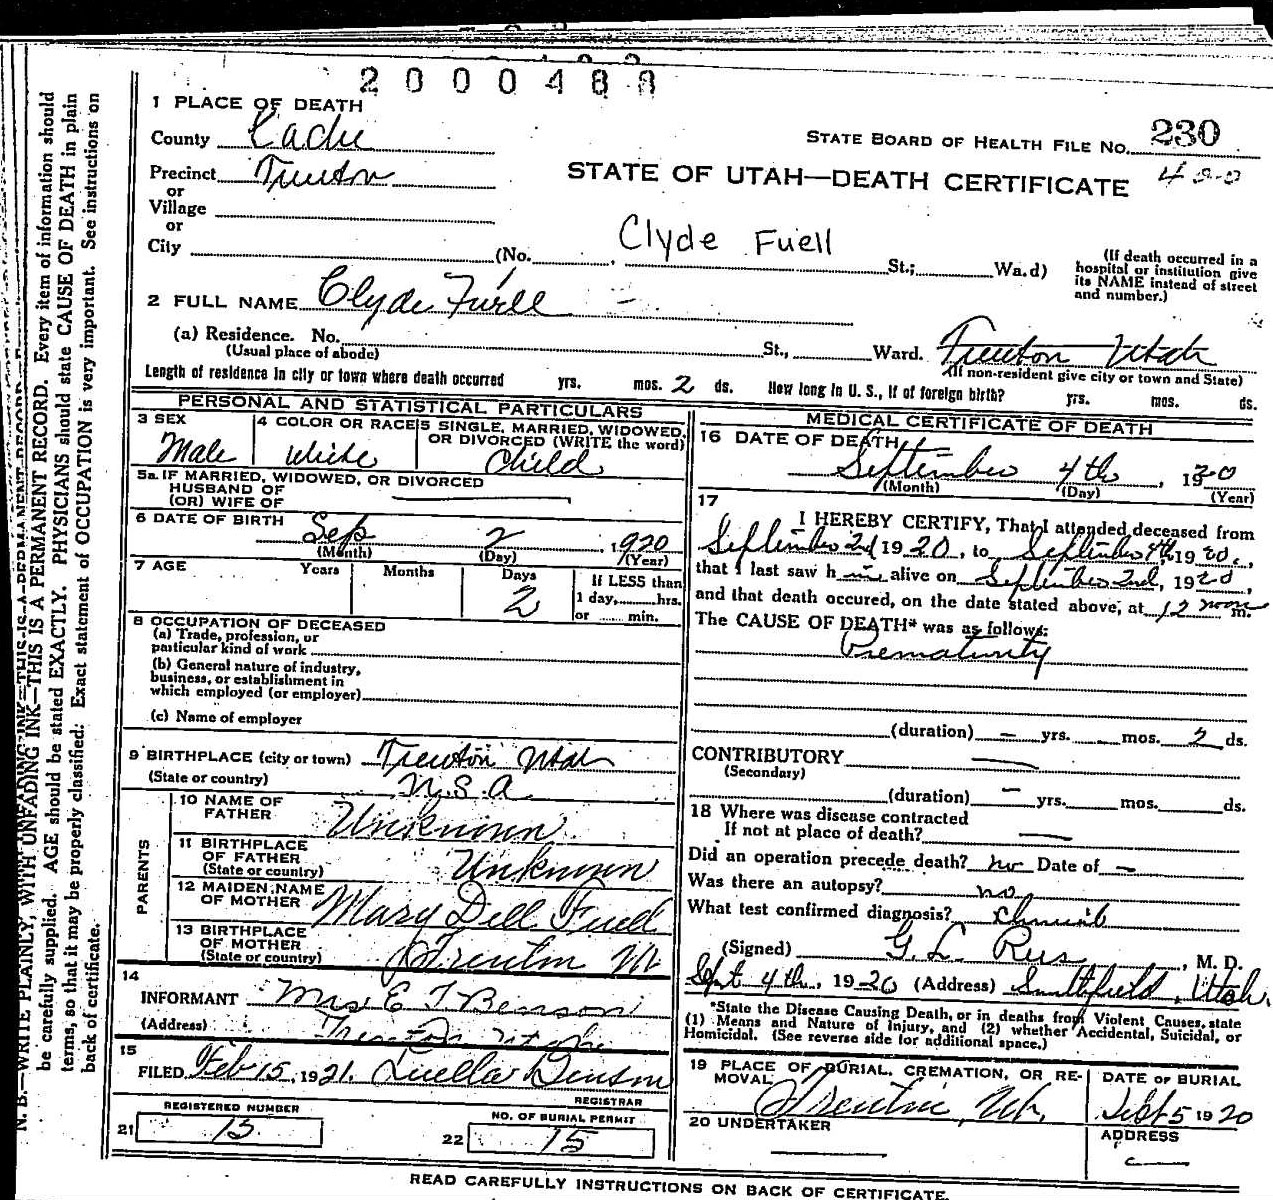 2000488
1 PLACE OF DEATH
County Cache
STATE BOARD OF HEALTH FILE No. 230
Precinct Trenton
STATE OF UTAH—DEATH CERTIFICATE 400
or
Village
or
City (No. Clyde Fuell St.; Wa.d)
(If death occurred in a
hospital or institution give
its NAME instead of street
and number.)
2 FULL NAME Clyde Fuell
(a) Residence. No. St., Ward. Trenton Utah
(Usual place of abode) (If non-resident give city or town and State)
Length of residence in city or town where death occurred yrs. mos. 2 ds. How long in U. S., if of foreign birth? yrs. mos. ds.
PERSONAL AND STATISTICAL PARTICULARS
3 SEX 4 COLOR OR RACE 5 SINGLE, MARRIED, WIDOWED,
OR DIVORCED (WRITE the word)
Male White Child
5a. IF MARRIED, WIDOWED, OR DIVORCED
HUSBAND OF
(OR) WIFE OF
6 DATE OF BIRTH Sep 2 1920
(Month) (Day) (Year)
7 AGE Years Months Days If LESS than
2 1 day, hrs.
or min.
8 OCCUPATION OF DECEASED
(a) Trade, profession, or
particular kind of work
(b) General nature of industry,
business, or establishment in
which employed (or employer)
(c) Name of employer
9 BIRTHPLACE (city or town) Trenton Utah
(State or country) U.S.A
PARENTS
10 NAME OF
FATHER Unknown
11 BIRTHPLACE
OF FATHER
(State or country) Unknown
12 MAIDEN NAME
OF MOTHER Mary Dell Fuell
13 BIRTHPLACE
OF MOTHER
(State or country) Trenton Ut
14
INFORMANT Mrs E T Benson
(Address) Trenton Utah
15
FILED Feb 15, 1921. Luella Benson
REGISTRAR
REGISTERED NUMBER NO. OF BURIAL PERMIT
21 15 22 15
MEDICAL CERTIFICATE OF DEATH
16 DATE OF DEATH
September 4th, 1920
(Month) (Day) (Year)
17
I HEREBY CERTIFY, That I attended deceased from
September 2nd 1920, to September 4th, 1920,
that I last saw him alive on September 2nd, 1920,
and that death occured, on the date stated above, at 12 noon m.
The CAUSE OF DEATH* was as follows:
Prematurity
(duration) — yrs. — mos. 2 ds.
CONTRIBUTORY —
(Secondary)
(duration) — yrs. mos. ds.
18 Where was disease contracted
If not at place of death? —
Did an operation precede death? no Date of —
Was there an autopsy? no
What test confirmed diagnosis?
(Signed) G. L. Rees, M. D.
Sept 4th, 1920 (Address) Smithfield, Utah.
*State the Disease Causing Death, or in deaths from Violent Causes, state
(1) Means and Nature of Injury, and (2) whether Accidental, Suicidal, or
Homicidal. (See reverse side for additional space.)
19 PLACE OF BURIAL, CREMATION, OR RE-
MOVAL
DATE OF BURIAL
Trenton, Ut. Sept 5 1920
20 UNDERTAKER ADDRESS
READ CAREFULLY INSTRUCTIONS ON BACK OF CERTIFICATE.
N. B.—WRITE PLAINLY, WITH UNFADING INK—THIS IS A PERMANENT RECORD. Every item of information should
be carefully supplied. AGE should be stated EXACTLY. PHYSICIANS should state CAUSE OF DEATH in plain
terms, so that it may be properly classified. Exact statement of OCCUPATION is very important. See instructions on
back of certificate.